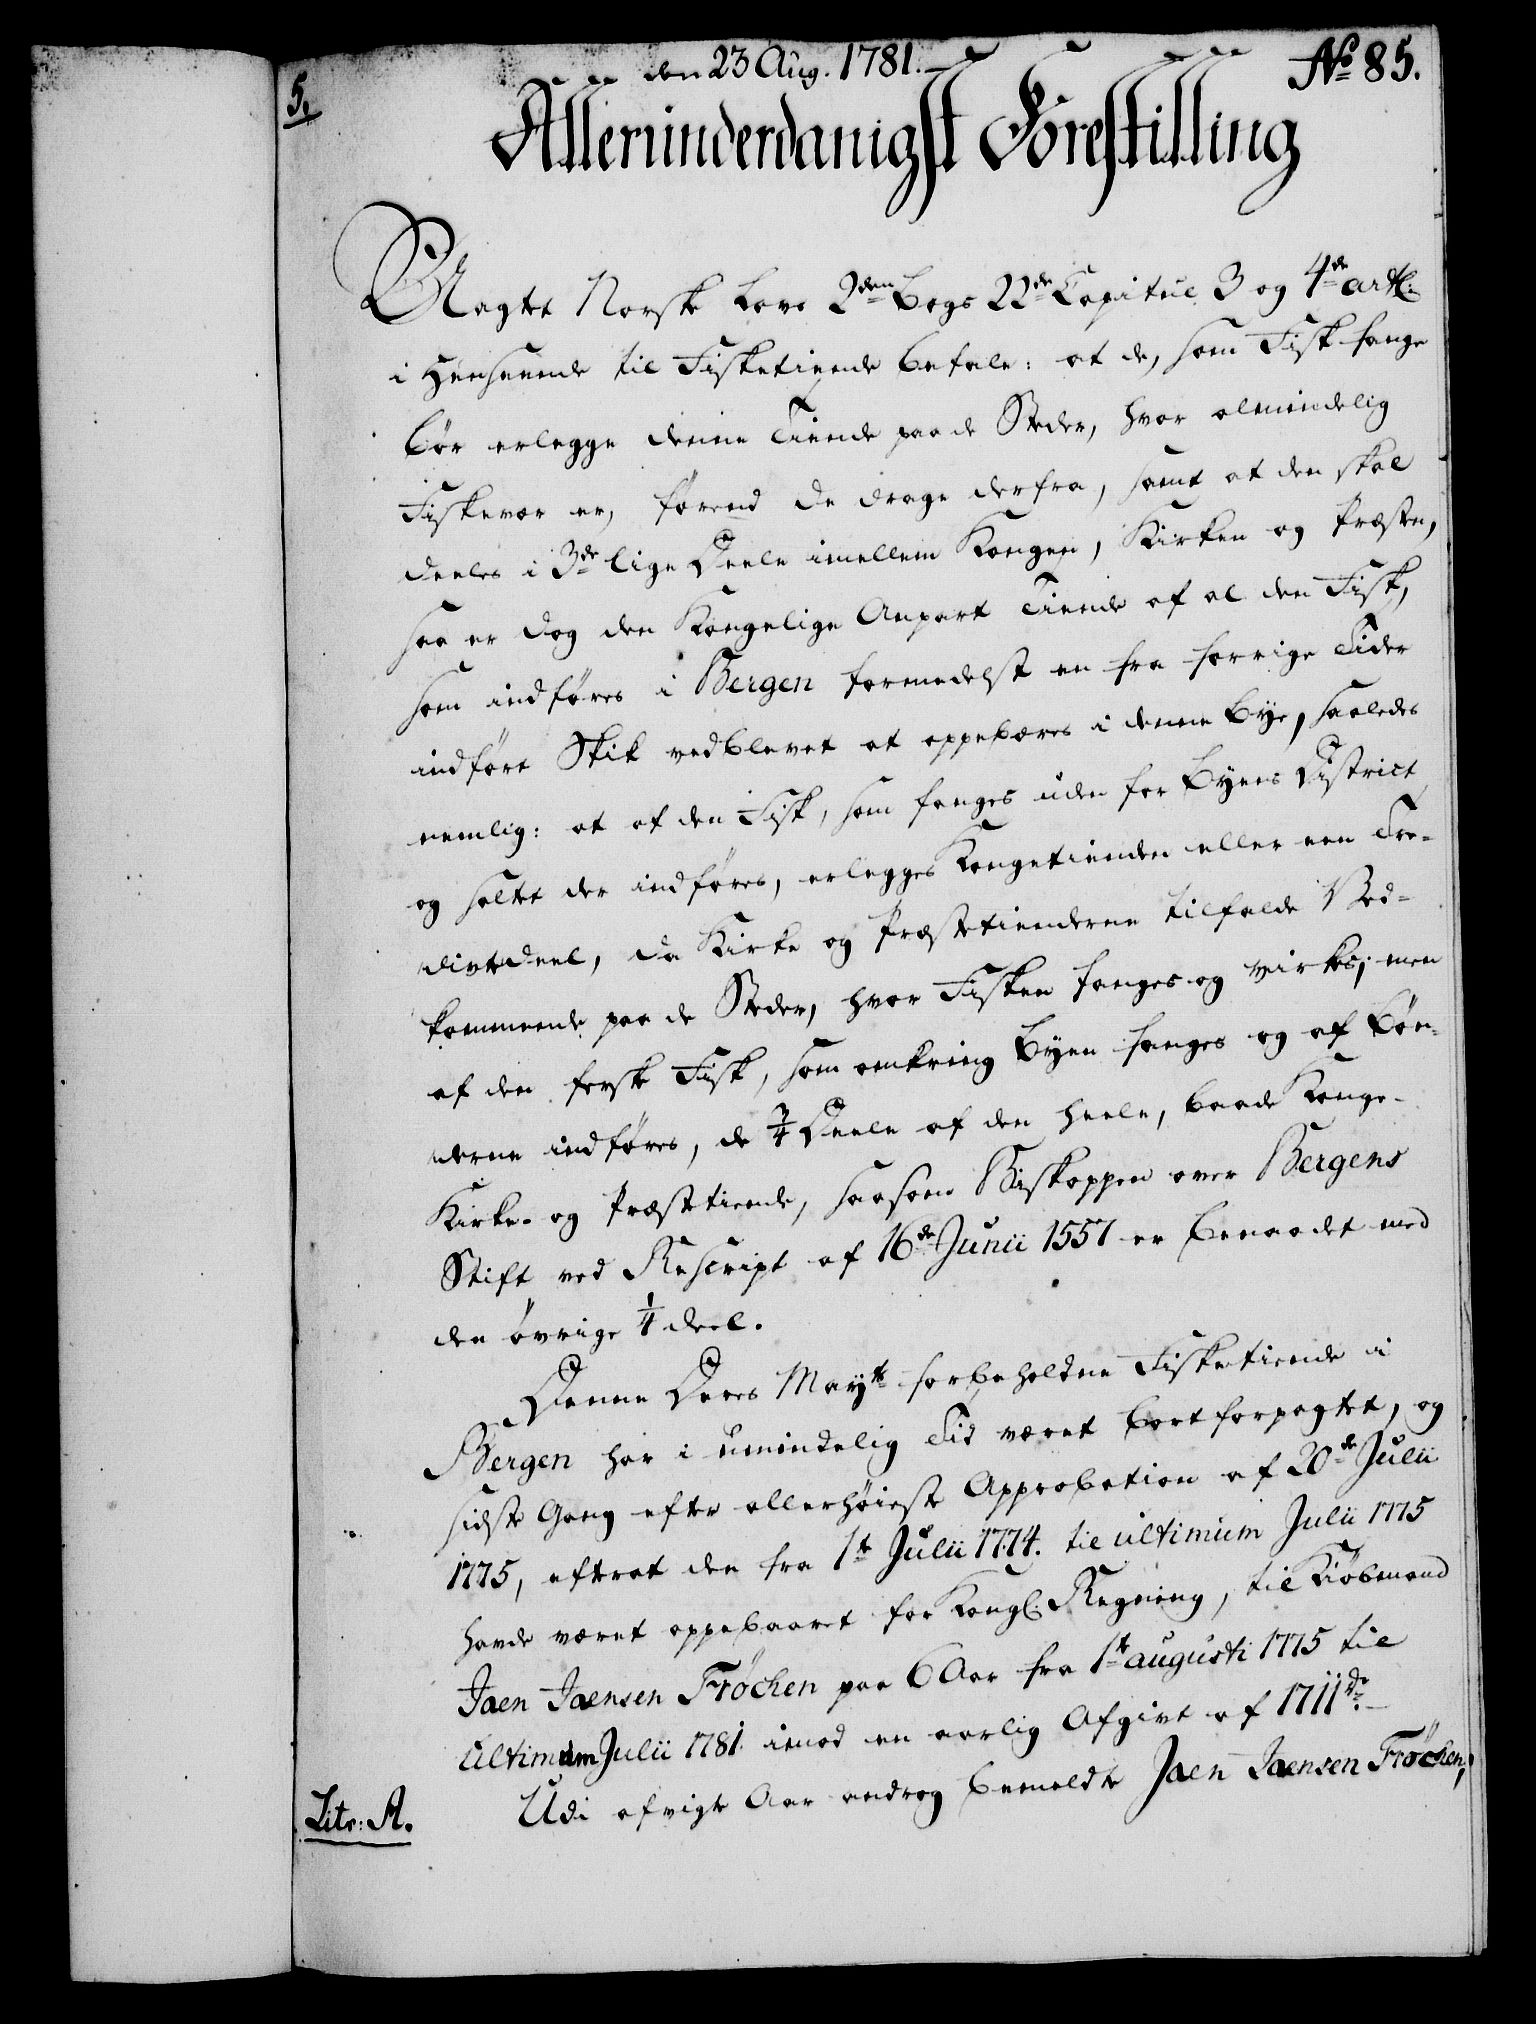 den 23 Aug. 1781.
No 85.
5.
Allerunderdanigst Forestilling
Uagtet Norske Lovs 2den Bogs 22de Capitul 3 og 4de artl:
i Henseende til Fisketiende befale: at de, som Fisk fange
bør erlegge denne Tiende paa de Steder, hvor almindelig
Fiskevær er, førend de drage derfra, samt at den skal
deeles i 3de lige Deele imellem Kongen, Kirken og Præsten,
saa er dog den Kongelige Anpart Tiende af al den Fisk,
som indføres i Bergen formedelst en fra forrige Tider
indført Skik vedblevet at oppebæres i denne Bye, saaledes
nemlig: at af den Fisk, som fanges uden for Byens District
og saltet der indføres, erlegges Kongetienden eller een Tre-
divtedeel, da Kirke og Præstetienderne tilfalde Ved-
kommende paa de Steder, hvor Fisken fanges og virkes; men
af den ferske Fisk, som omkring Byen fanges og af Bøn-
derne indføres, de 3/4 Deele af den heele, baade Konge-
Kirke- og Præstetiende, saasom Biskoppen over Bergens
Stift ved Rescript af 16de Junii 1557 er benaadet med
den øvrige 1/4 deel.
Denne Deres Mayts forbeholdne Fisketiende i
Bergen har i umindelig Tid været bortforpagtet, og
sidste Gang efter allerhøieste Approbation af 20de Julii
1775, efterat den fra 1te Julii 1774. til ultimum Julii 1775
havde været oppebaaret for Kongl: Regning, til Kiøbmand
Jaen Jaensen Frøchen paa 6 Aar fra 1te augusti 1775 til
ultimum Julii 1781 imod en aarlig Afgivt af 1711 rd.
Litr: A.
Udi afvigte Aar androg bemeldte Jaen Jaensen Frøchen,